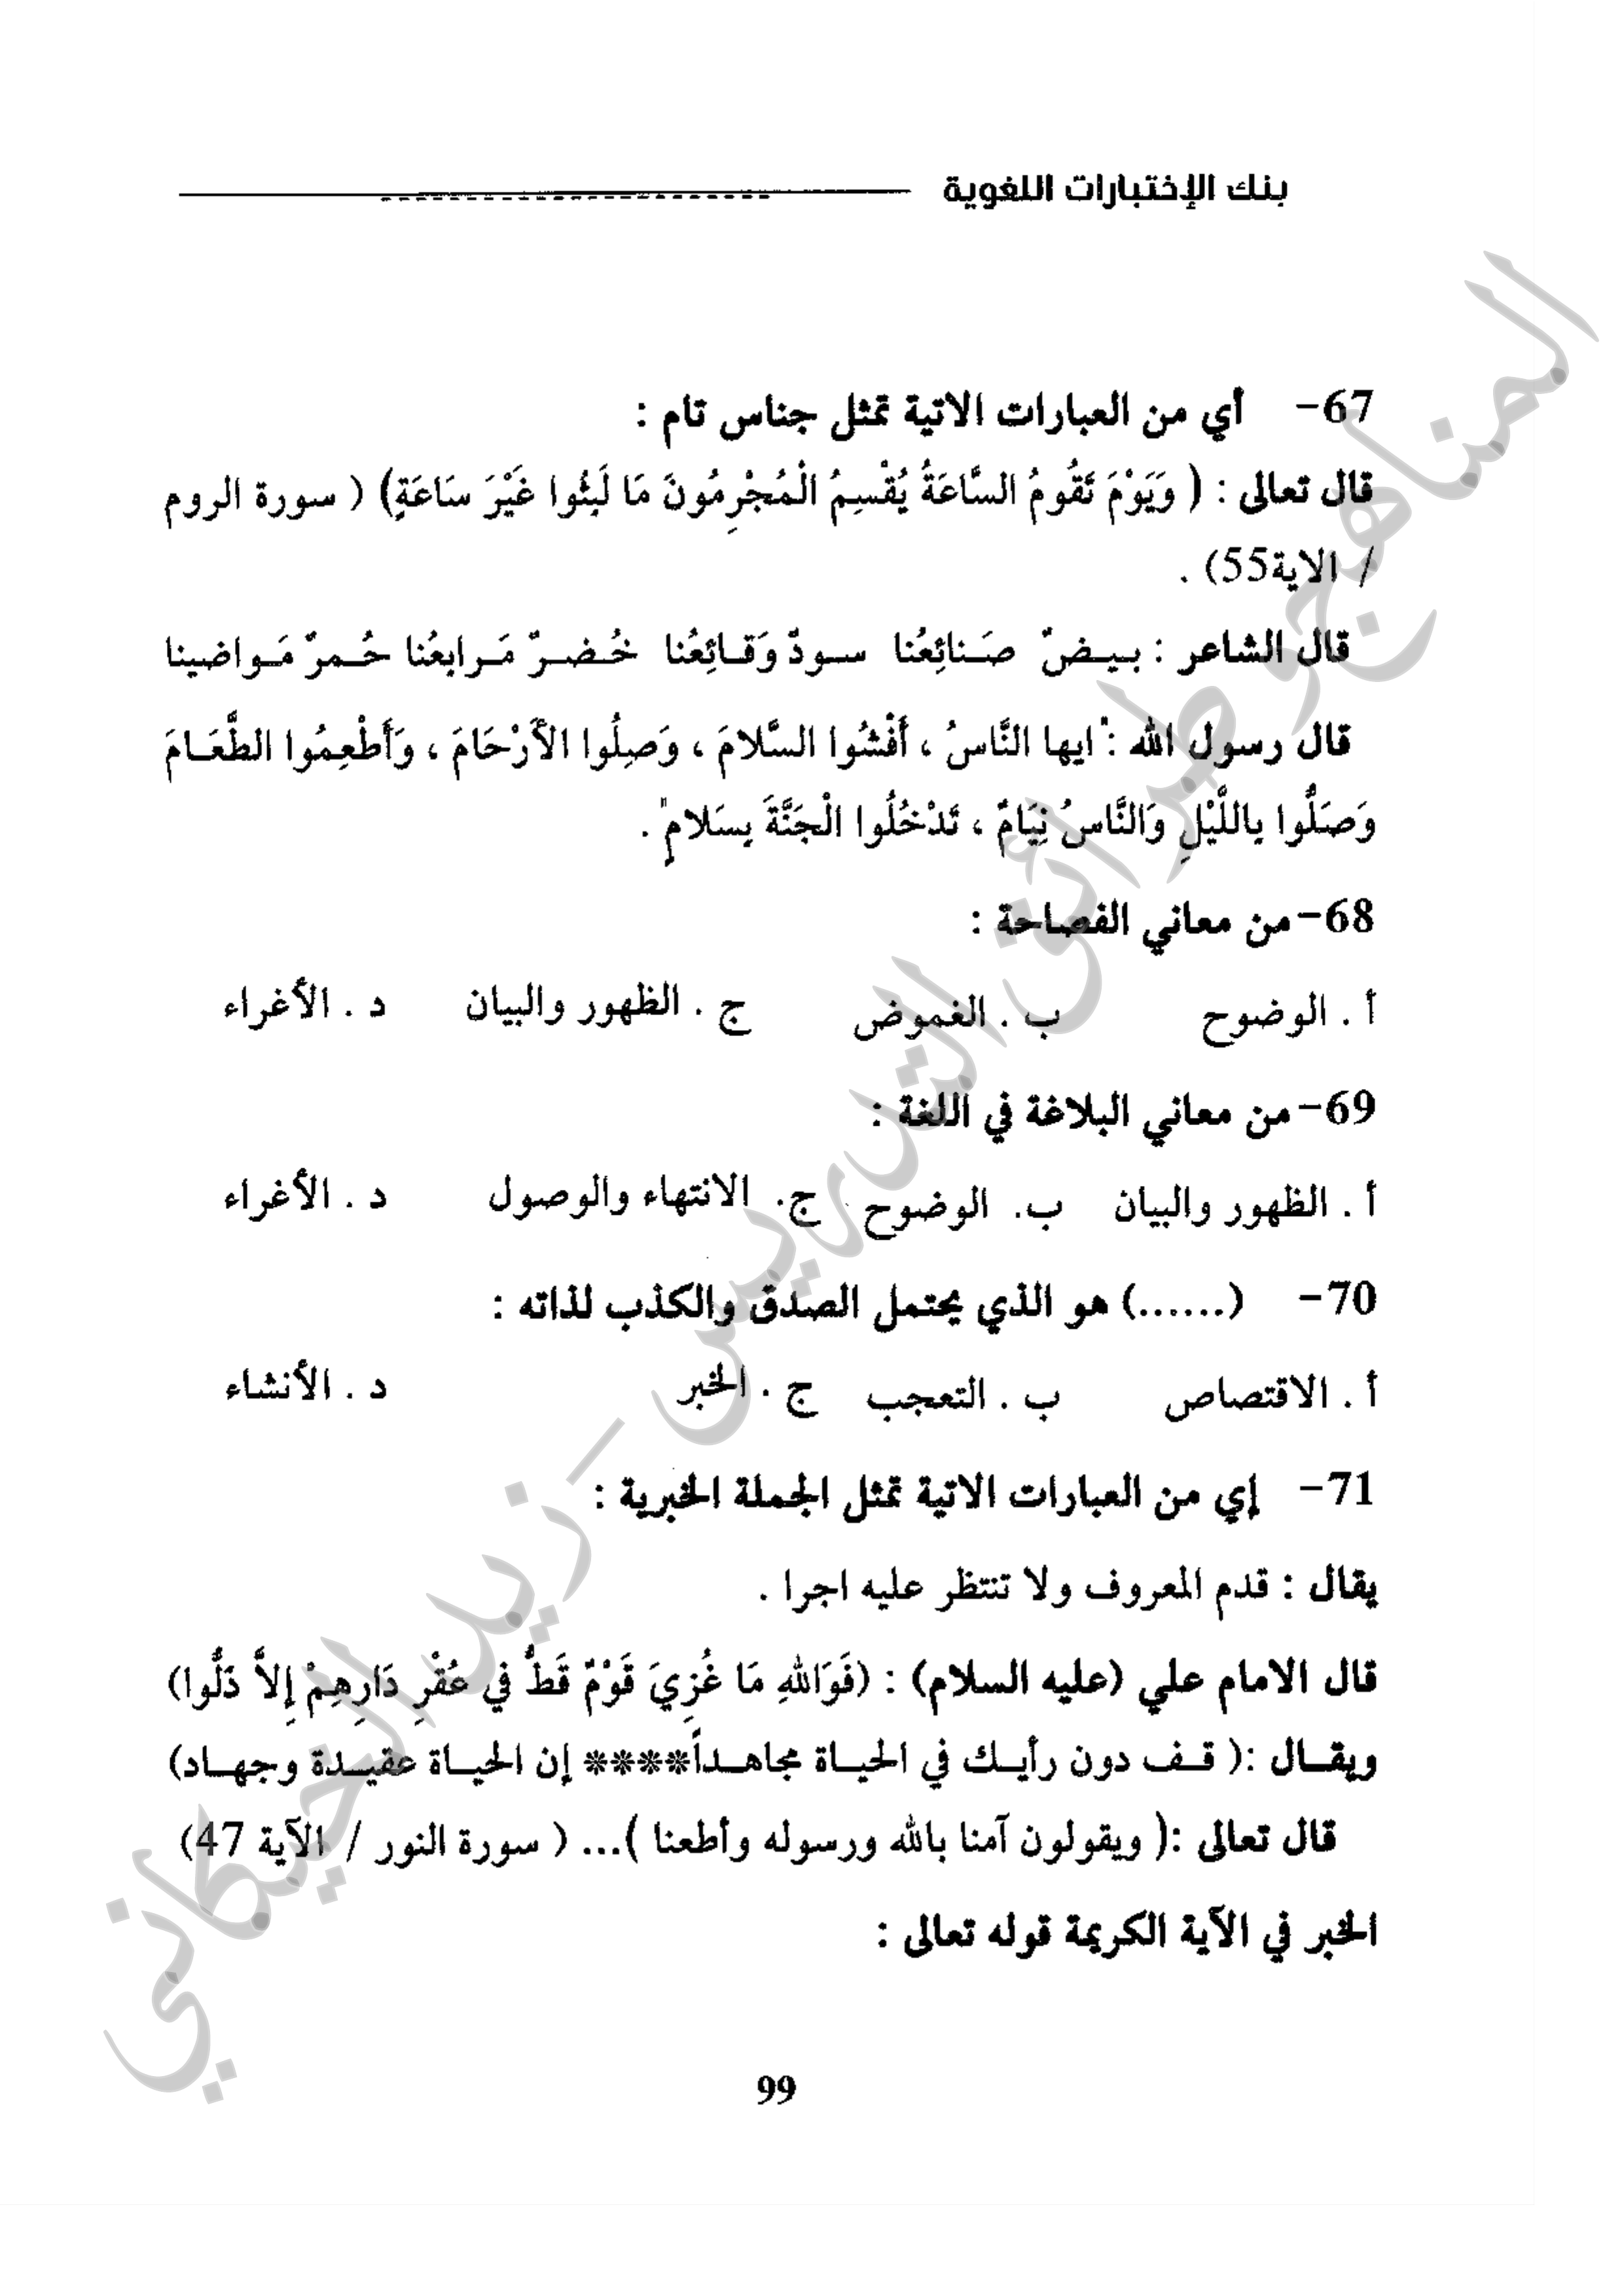 بنك الإختبارات اللغوية
67- أي من العبارات الاتية تمثل جناس تام :
قال تعالى : ( وَيَوْمَ تَقُومُ السَّاعَةُ يُقْسِمُ الْمُجْرِمُونَ مَا لَبِثُوا غَيْرَ سَاعَةٍ) ( سورة الروم
/ الاية55) .
قال الشاعر : بيضٌ صَنائِعُنا سودٌ وَقائِعُنا خُضرٌ مَرابعُنا حُمرٌ مَواضينا
قال رسول الله :"ايها النَّاسُ ، أَفْشُوا السَّلامَ ، وَصِلُوا الأَرْحَامَ ، وَأَطْعِمُوا الطَّعَامَ
وَصَلُّوا بِاللَّيْلِ وَالنَّاسُ نِيَامٌ ، تَدْخُلُوا الْجَنَّةَ بِسَلامٍ" .
68- من معاني الفصاحة :
أ . الوضوح ب . الغموض ج . الظهور والبيان د . الأغراء
69- من معاني البلاغة في اللغة :
أ . الظهور والبيان ب. الوضوح ج. الانتهاء والوصول د . الأغراء
70- (......) هو الذي يحتمل الصدق والكذب لذاته :
أ . الاقتصاص ب . التعجب ج . الخبر د . الأنشاء
71- إي من العبارات الاتية تمثل الجملة الخبرية :
يقال : قدم المعروف ولا تنتظر عليه اجرا .
قال الامام علي (عليه السلام) : (فَوَاللهِ مَا غُزِيَ قَوْمٌ قَطُّ في عُقْرِ دَارِهِمْ إِلاَّ ذَلُّوا)
ويقال :( قف دون رأيك في الحياة مجاهداً**** إن الحياة عقيدة وجهاد)
قال تعالى :( ويقولون آمنا بالله ورسوله وأطعنا )... ( سورة النور / الآية 47)
الخبر في الآية الكريمة قوله تعالى :
99
المناهج وطرائق التدريس - زيد الخيكاني